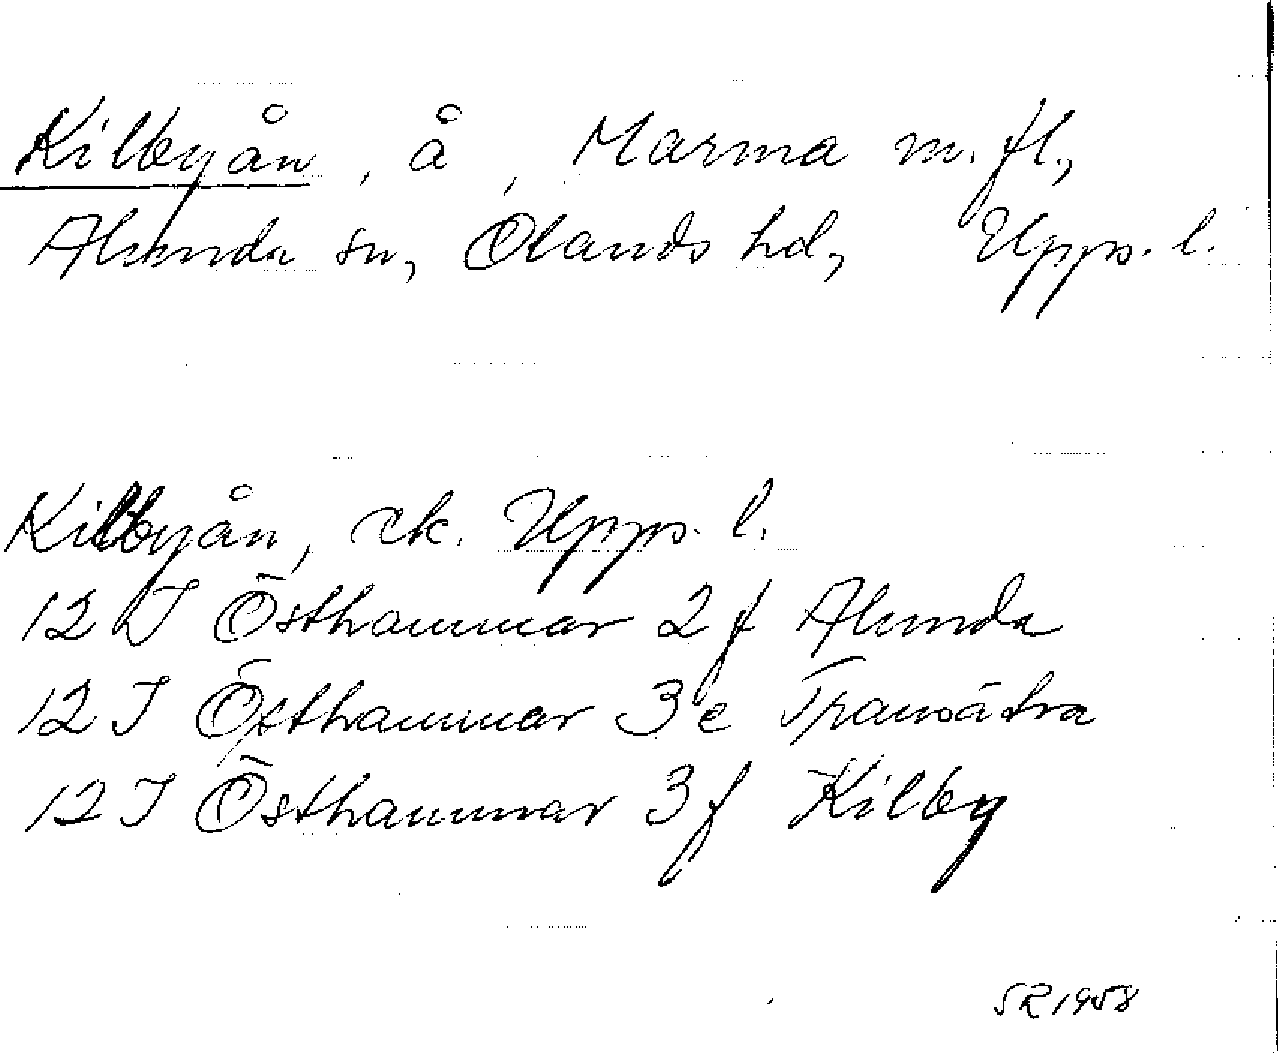 Kilbyån, å, Marma m.fl.,
Alunda sn, Olands hd, Upps. l.
Kilbyån, ek. Upps. l.
12 I Östhammar 2 f Alunda
12 I Östhammar 3 e Tramsätra
12 I Östhammar 3 f Kilby
SR 1958